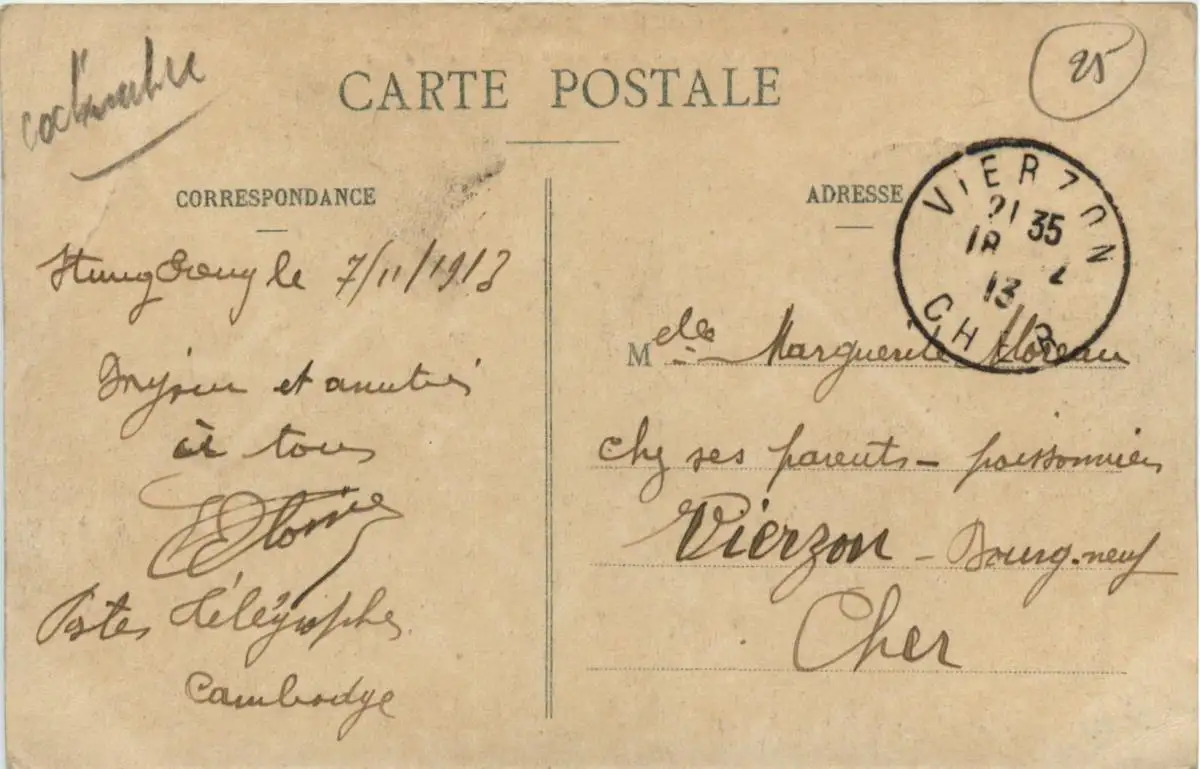 CARTE POSTALE
25
CORRESPONDANCE
ADRESSE
VIERZON
21 35
18 2
13
CHER
Stung Treng le 7/11/1913
et amitiés
à tous
Postes Télégraphes
Cambodge
Melle Marguerite Moreau
chez ses parents - poissonnier
Vierzon - Bourgneuf
Cher